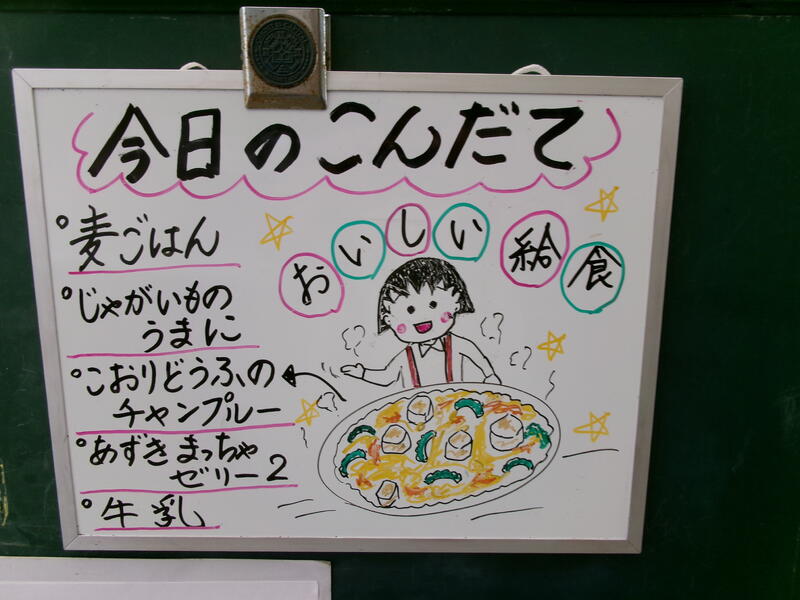 今日のこんだて
おいしい給食
°麦ごはん
°じゃがいもの
うまに
°こおりどうふの
チャンプルー
°あずきまっちゃ
ゼリー2
°牛乳